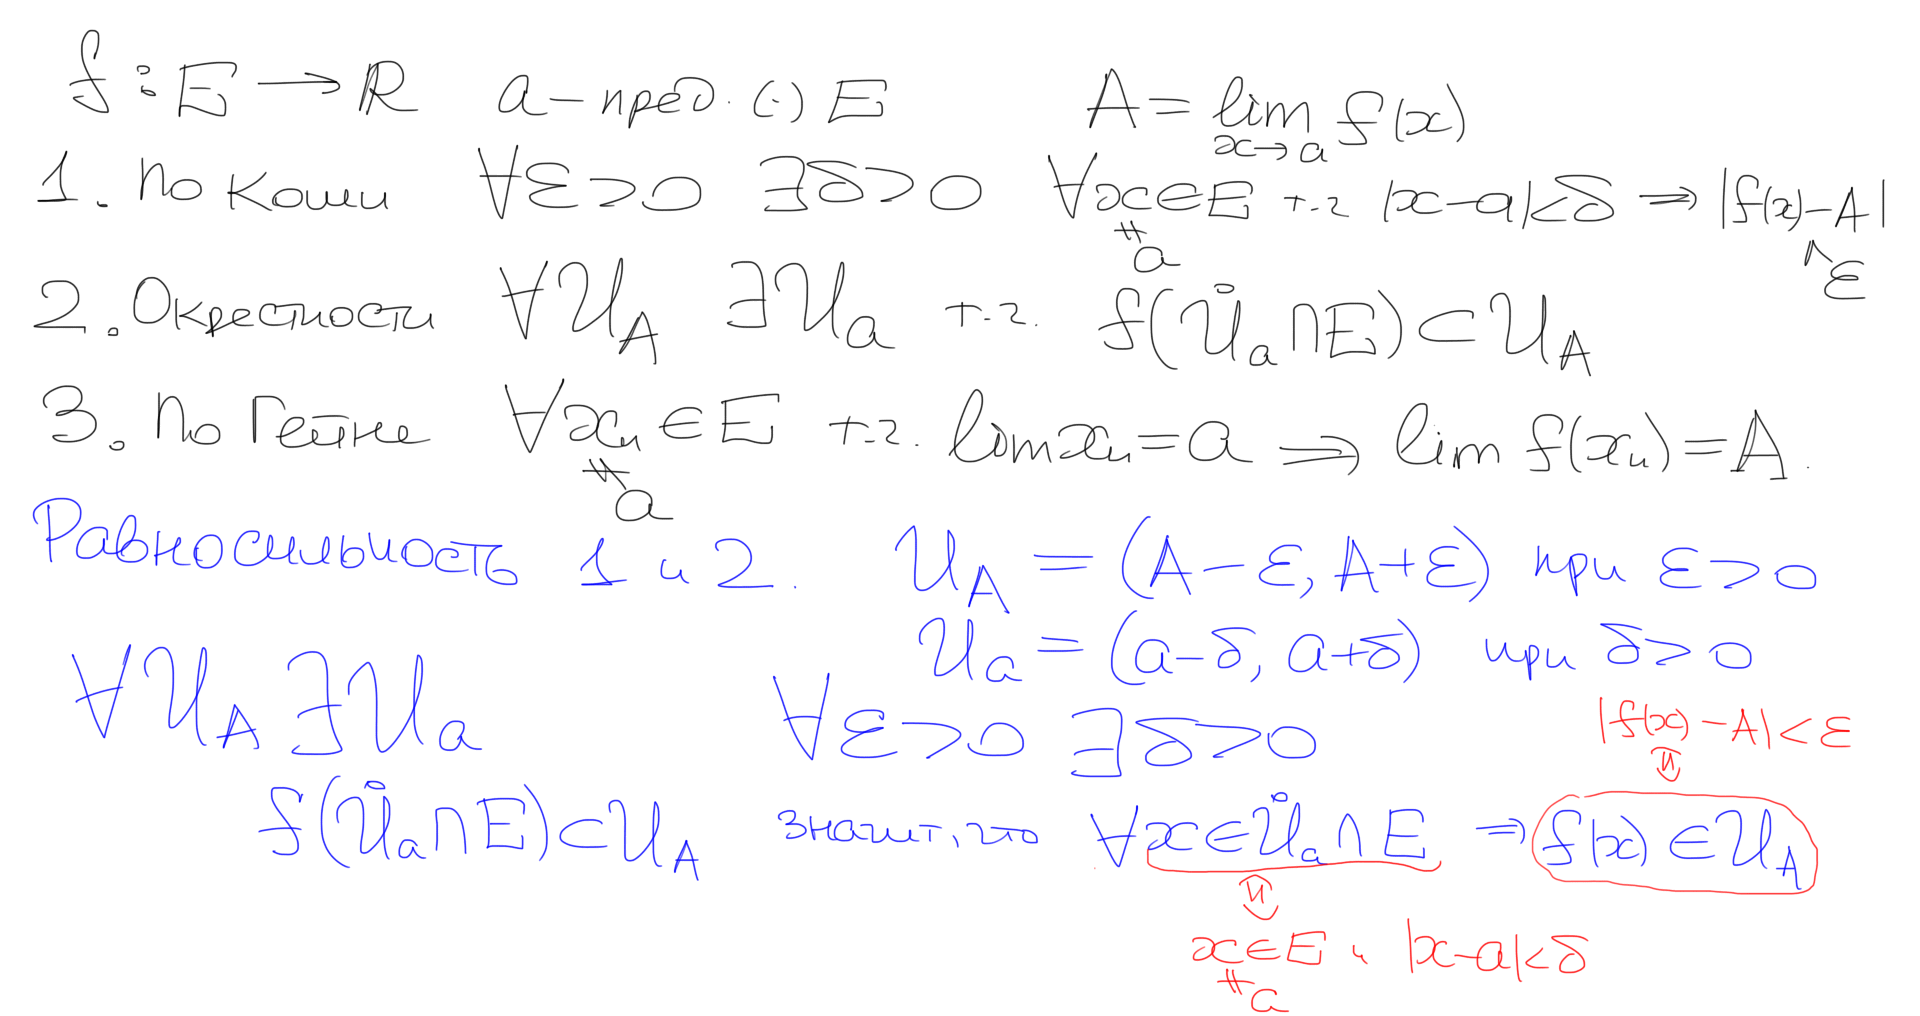 f : E → ℝ   a – пред. (·) E   A = lim_{x→a} f(x)
1. По Коши   ∀ε>0 ∃δ>0 ∀x∈E т.ч. |x−a|<δ ⇒ |f(x)−A|
≠ a   < ε
2. Окрестности   ∀U_A ∃U_a т.ч. f(Ů_a ∩ E) ⊂ U_A
3. По Гейне   ∀x_n ∈ E т.ч. lim x_n = a ⇒ lim f(x_n) = A.
≠ a
Равносильность 1 и 2.   U_A = (A−ε, A+ε) при ε>0
U_a = (a−δ, a+δ) при δ>0
∀U_A ∃U_a   ∀ε>0 ∃δ>0   |f(x)−A|<ε
⇕
f(Ů_a ∩ E) ⊂ U_A   значит, что ∀x∈Ů_a ∩ E ⇒ f(x) ∈ U_A
⇕
x∈E и |x−a|<δ
≠ a